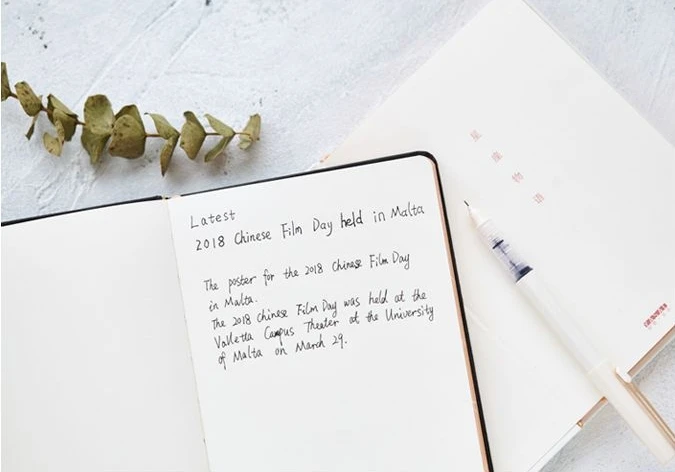 Latest
2018 Chinese Film Day held in Malta
The poster for the 2018 Chinese Film Day
in Malta.
The 2018 Chinese Film Day was held at the
Valletta Campus Theater at the University
of Malta on March 29.